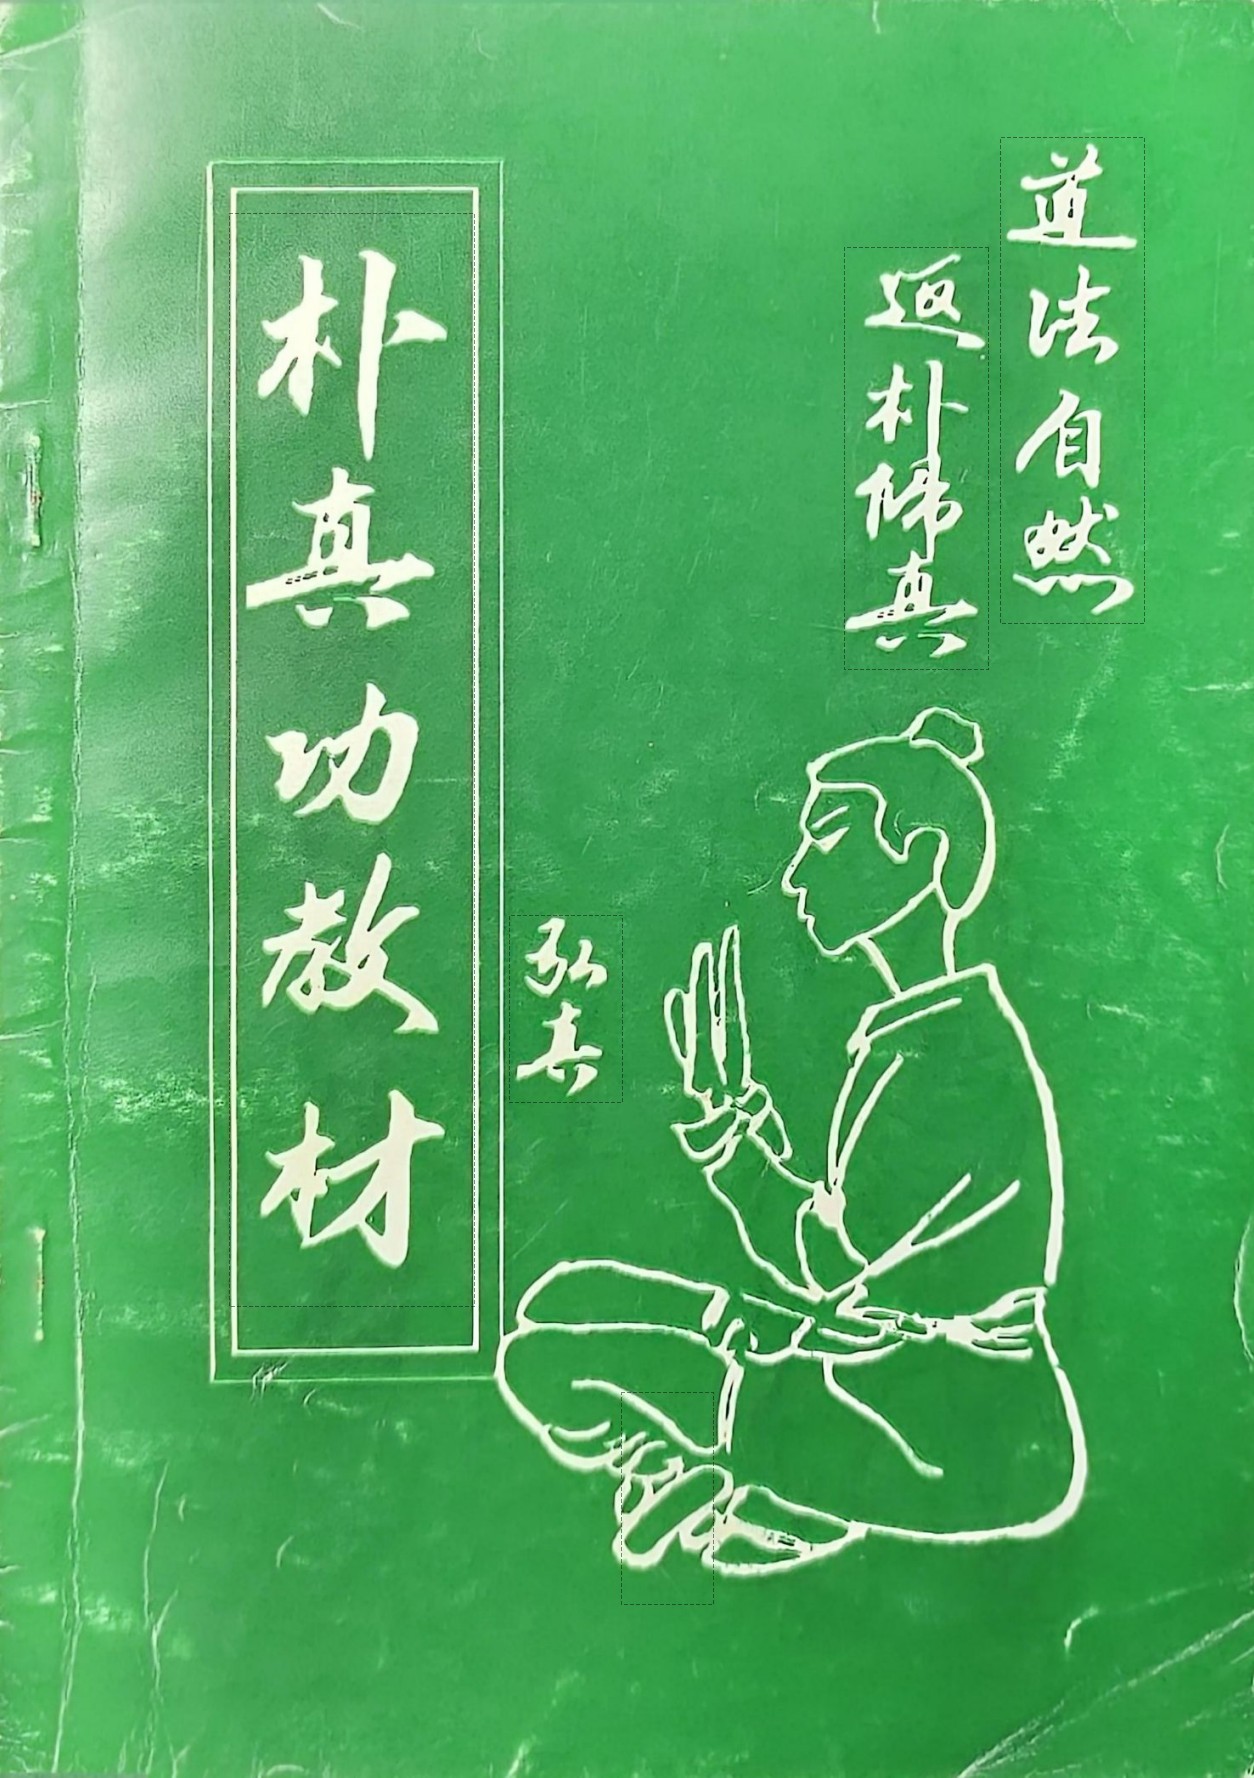 道法自然
返朴归真
朴真功教材
弘真